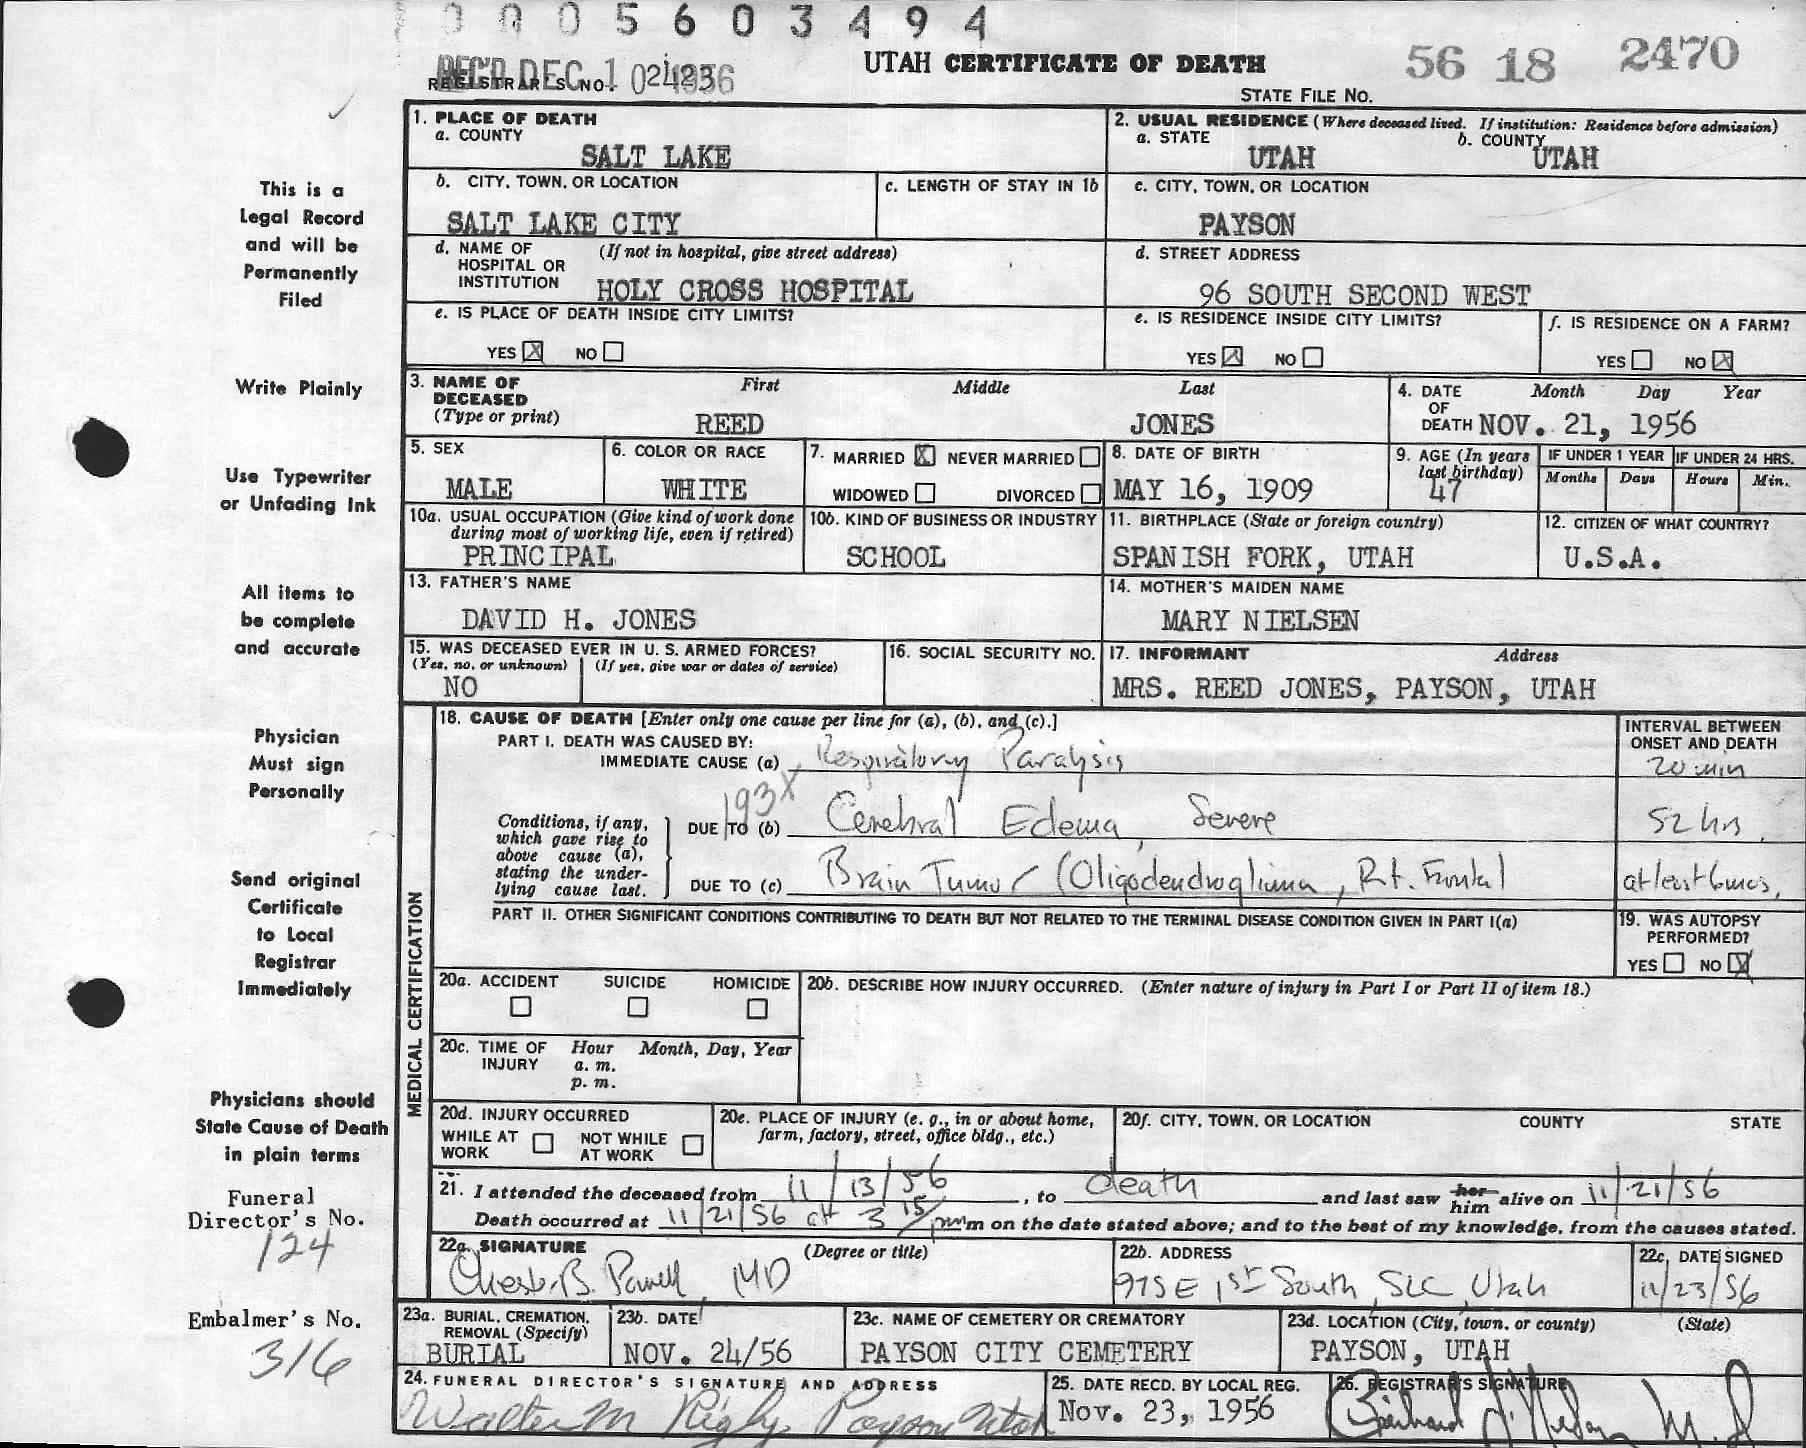 0005603494
REC'D DEC 10 1956
UTAH CERTIFICATE OF DEATH
56 18 2470
REGISTRAR'S NO. 2423
STATE FILE NO.
This is a
Legal Record
and will be
Permanently
Filed
Write Plainly
Use Typewriter
or Unfading Ink
All items to
be complete
and accurate
Physician
Must sign
Personally
Send original
Certificate
to Local
Registrar
Immediately
Physicians should
State Cause of Death
in plain terms
Funeral
Director's No.
124
Embalmer's No.
316
1. PLACE OF DEATH
a. COUNTY
SALT LAKE
2. USUAL RESIDENCE (Where deceased lived. If institution: Residence before admission)
a. STATE
UTAH
b. COUNTY
UTAH
b. CITY, TOWN, OR LOCATION
SALT LAKE CITY
c. LENGTH OF STAY IN 1b
c. CITY, TOWN, OR LOCATION
PAYSON
d. NAME OF (If not in hospital, give street address)
HOSPITAL OR
INSTITUTION HOLY CROSS HOSPITAL
d. STREET ADDRESS
96 SOUTH SECOND WEST
e. IS PLACE OF DEATH INSIDE CITY LIMITS?
YES X NO
e. IS RESIDENCE INSIDE CITY LIMITS?
YES X NO
f. IS RESIDENCE ON A FARM?
YES NO X
3. NAME OF First Middle Last
DECEASED
(Type or print) REED JONES
4. DATE Month Day Year
OF
DEATH NOV. 21, 1956
5. SEX
MALE
6. COLOR OR RACE
WHITE
7. MARRIED X NEVER MARRIED
WIDOWED DIVORCED
8. DATE OF BIRTH
MAY 16, 1909
9. AGE (In years
last birthday)
47
IF UNDER 1 YEAR
Months Days
IF UNDER 24 HRS.
Hours Min.
10a. USUAL OCCUPATION (Give kind of work done
during most of working life, even if retired)
PRINCIPAL
10b. KIND OF BUSINESS OR INDUSTRY
SCHOOL
11. BIRTHPLACE (State or foreign country)
SPANISH FORK, UTAH
12. CITIZEN OF WHAT COUNTRY?
U.S.A.
13. FATHER'S NAME
DAVID H. JONES
14. MOTHER'S MAIDEN NAME
MARY NIELSEN
15. WAS DECEASED EVER IN U. S. ARMED FORCES?
(Yes, no, or unknown) (If yes, give war or dates of service)
NO
16. SOCIAL SECURITY NO.
17. INFORMANT Address
MRS. REED JONES, PAYSON, UTAH
MEDICAL CERTIFICATION
18. CAUSE OF DEATH [Enter only one cause per line for (a), (b), and (c).]
INTERVAL BETWEEN
ONSET AND DEATH
PART I. DEATH WAS CAUSED BY:
IMMEDIATE CAUSE (a) Respiratory Paralysis 20 min
193X
Conditions, if any,
which gave rise to
above cause (a),
stating the under-
lying cause last.
DUE TO (b) Cerebral Edema, Severe 52 hrs.
DUE TO (c) Brain Tumor (Oligodendroglioma, Rt. Frontal at least 6 mos.
PART II. OTHER SIGNIFICANT CONDITIONS CONTRIBUTING TO DEATH BUT NOT RELATED TO THE TERMINAL DISEASE CONDITION GIVEN IN PART I(a)
19. WAS AUTOPSY
PERFORMED?
YES NO X
20a. ACCIDENT SUICIDE HOMICIDE
20b. DESCRIBE HOW INJURY OCCURRED. (Enter nature of injury in Part I or Part II of item 18.)
20c. TIME OF Hour Month, Day, Year
INJURY a. m.
p. m.
20d. INJURY OCCURRED
WHILE AT NOT WHILE
WORK AT WORK
20e. PLACE OF INJURY (e. g., in or about home,
farm, factory, street, office bldg., etc.)
20f. CITY, TOWN, OR LOCATION COUNTY STATE
21. I attended the deceased from 11/13/56, to death and last saw her him alive on 11/21/56
Death occurred at 11/21/56 at 3 15/pm m on the date stated above; and to the best of my knowledge, from the causes stated.
22a. SIGNATURE (Degree or title)
Chester B. Powell, MD
22b. ADDRESS
975 E 1st South, SLC, Utah
22c. DATE SIGNED
11/23/56
23a. BURIAL, CREMATION,
REMOVAL (Specify)
BURIAL
23b. DATE
NOV. 24/56
23c. NAME OF CEMETERY OR CREMATORY
PAYSON CITY CEMETERY
23d. LOCATION (City, town, or county) (State)
PAYSON, UTAH
24. FUNERAL DIRECTOR'S SIGNATURE AND ADDRESS
Walter M Rigby Payson Utah
25. DATE RECD. BY LOCAL REG.
Nov. 23, 1956
26. REGISTRAR'S SIGNATURE